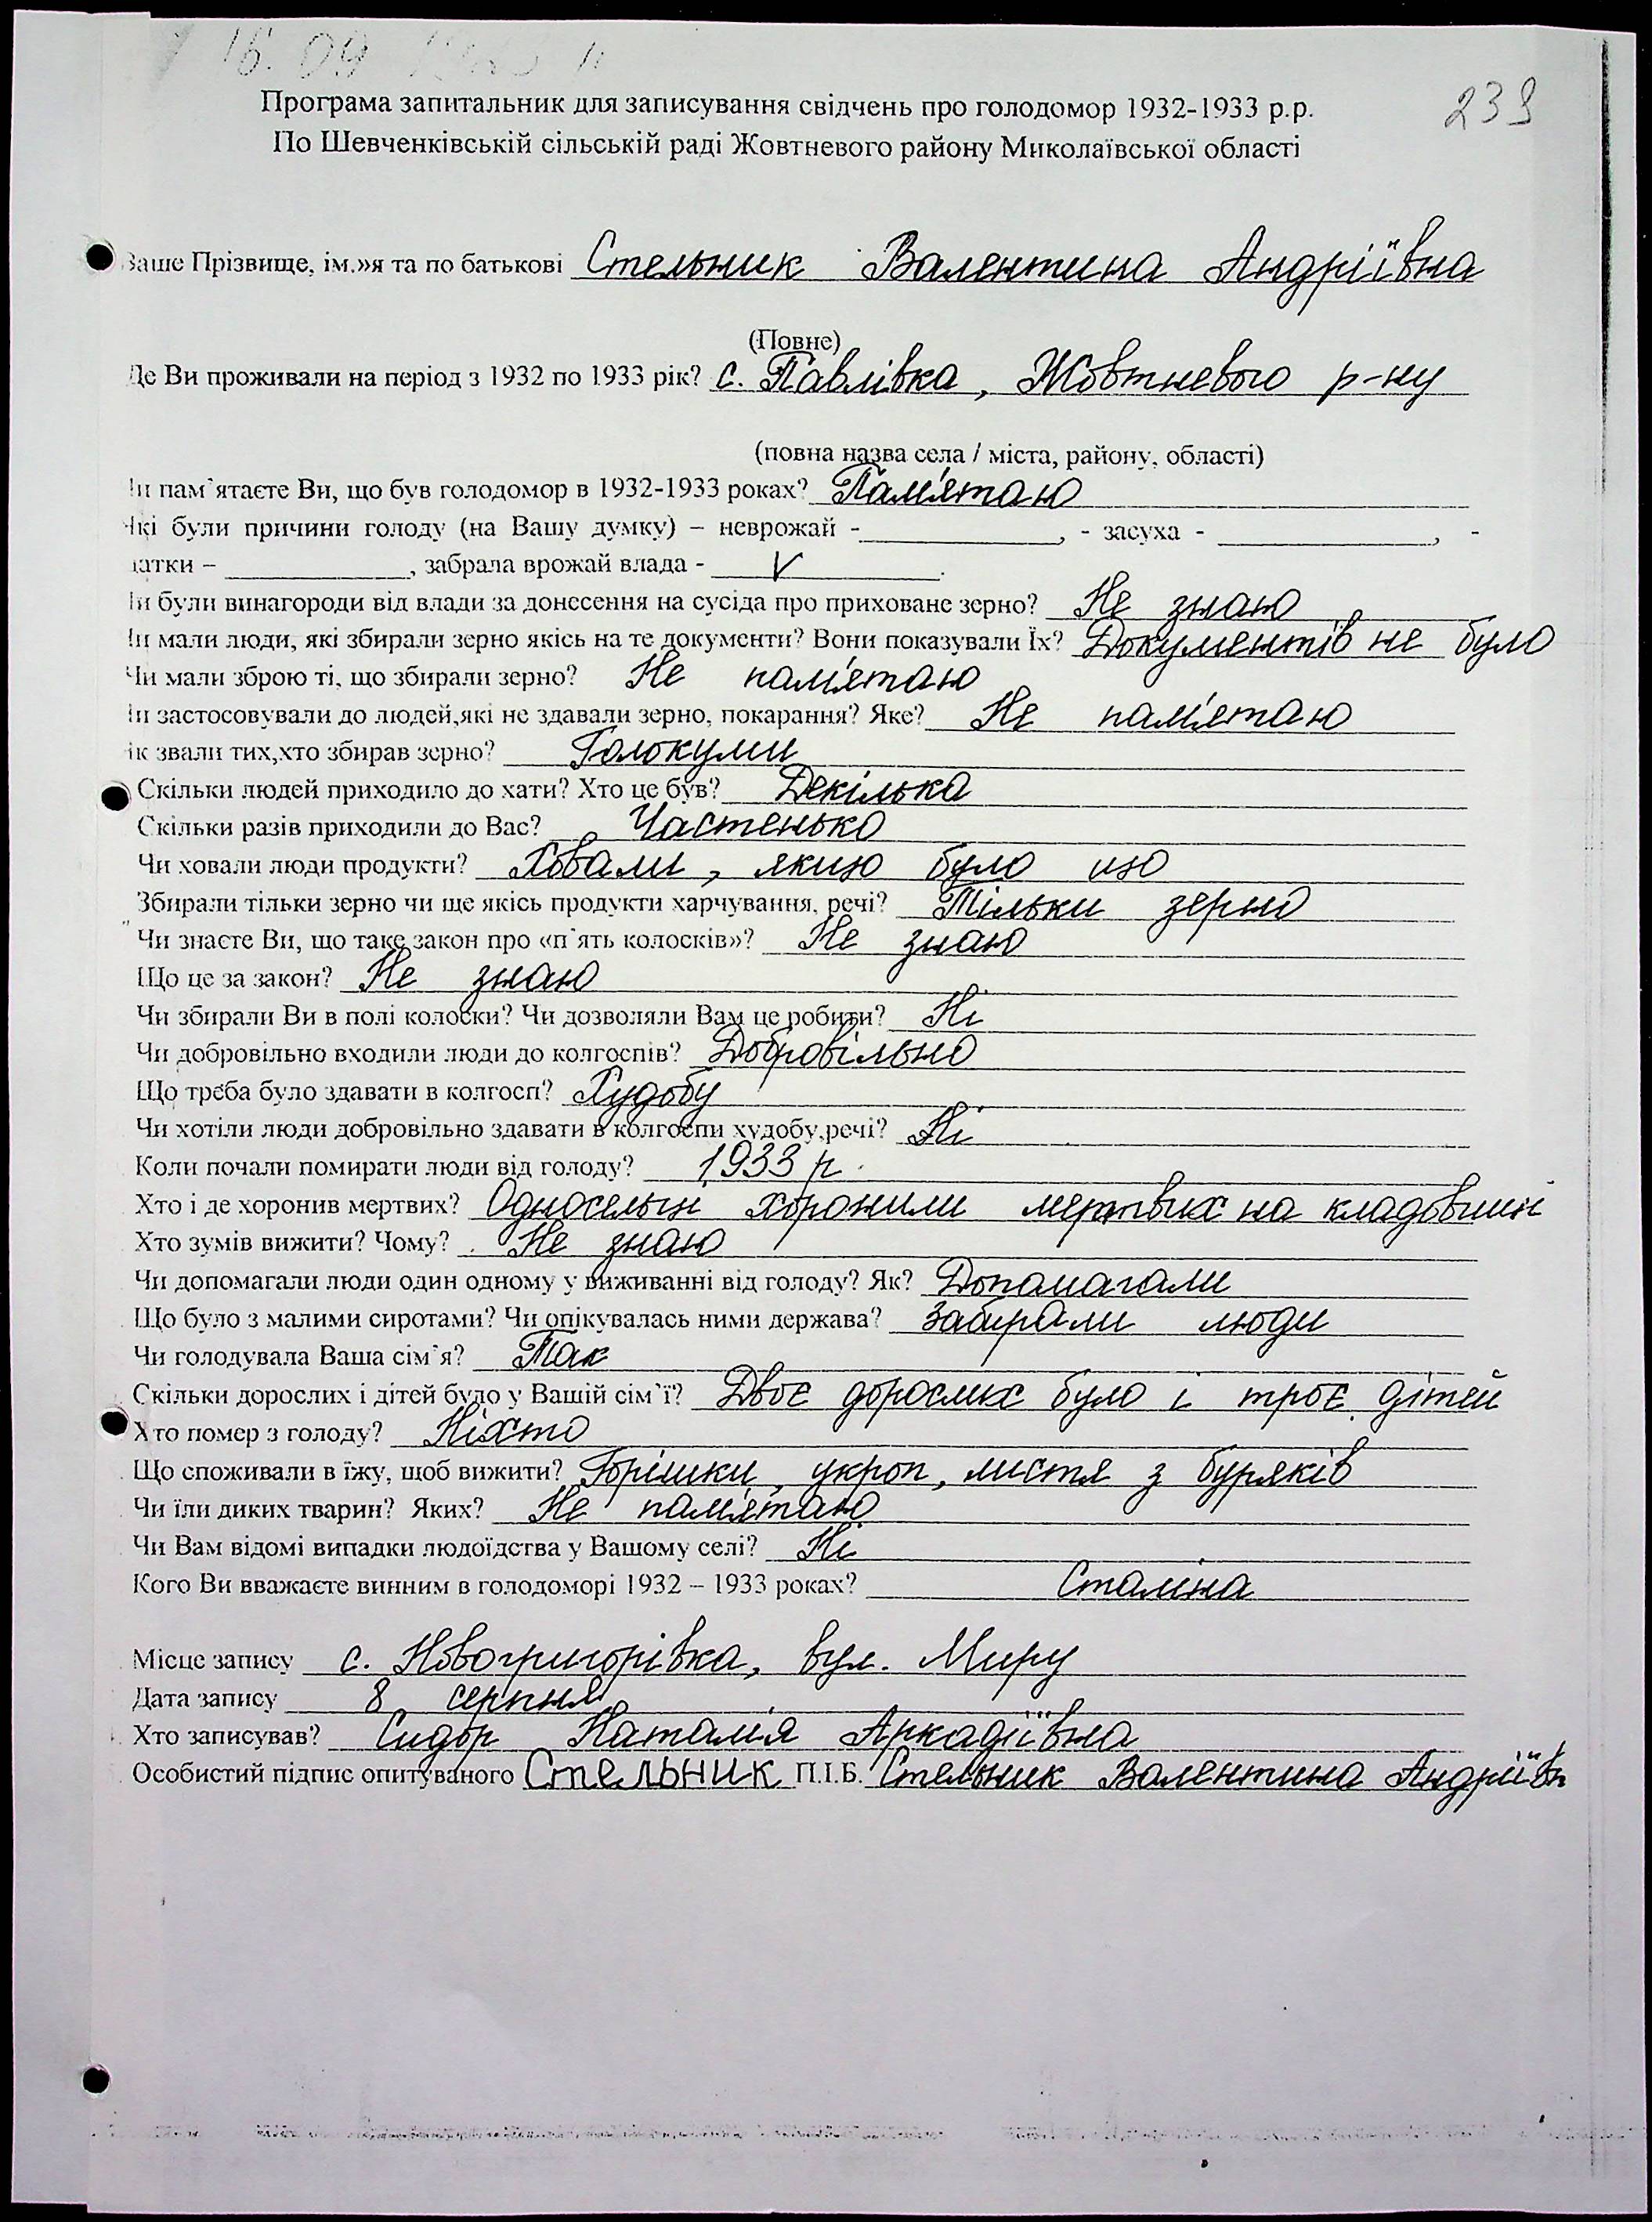 16. 09
239
Програма запитальник для записування свідчень про голодомор 1932-1933 р.р.
По Шевченківській сільській раді Жовтневого району Миколаївської області
Ваше Прізвище, ім.»я та по батькові Стельник Валентина Андріївна
(Повне)
Де Ви проживали на період з 1932 по 1933 рік? с. Павлівка, Жовтневого р-ну
(повна назва села / міста, району, області)
Чи пам`ятаєте Ви, що був голодомор в 1932-1933 роках? Пам'ятаю
Які були причини голоду (на Вашу думку) – неврожай - , - засуха - , -
датки – , забрала врожай влада - V .
Чи були винагороди від влади за донесення на сусіда про приховане зерно? Не знаю
Чи мали люди, які збирали зерно якісь на те документи? Вони показували Їх? Документів не було
Чи мали зброю ті, що збирали зерно? Не пам'ятаю
Чи застосовували до людей,які не здавали зерно, покарання? Яке? Не пам'ятаю
Як звали тих,хто збирав зерно? Голокуми
Скільки людей приходило до хати? Хто це був? Декілька
Скільки разів приходили до Вас? Частенько
Чи ховали люди продукти? Ховали, якщо було що
Збирали тільки зерно чи ще якісь продукти харчування, речі? Тільки зерно
Чи знаєте Ви, що таке закон про «п`ять колосків»? Не знаю
Що це за закон? Не знаю
Чи збирали Ви в полі колоски? Чи дозволяли Вам це робити? Ні
Чи добровільно входили люди до колгоспів? Добровільно
Що треба було здавати в колгосп? Худобу
Чи хотіли люди добровільно здавати в колгоспи худобу,речі? Ні
Коли почали помирати люди від голоду? 1933 р.
Хто і де хоронив мертвих? Односельці хоронили мертвих на кладовищі
Хто зумів вижити? Чому? Не знаю
Чи допомагали люди один одному у виживанні від голоду? Як? Допомагали
Що було з малими сиротами? Чи опікувалась ними держава? Забирали люди
Чи голодувала Ваша сім`я? Так
Скільки дорослих і дітей було у Вашій сім`ї? Двоє дорослих було і троє дітей
Хто помер з голоду? Ніхто
Що споживали в їжу, щоб вижити? Горішки, укроп, листя з буряків
Чи їли диких тварин? Яких? Не пам'ятаю
Чи Вам відомі випадки людоїдства у Вашому селі? Ні
Кого Ви вважаєте винним в голодоморі 1932 – 1933 роках? Сталіна
Місце запису с. Новогригорівка, вул. Миру
Дата запису 8 серпня
Хто записував? Сидор Наталія Аркадіївна
Особистий підпис опитуваного Стельник П.І.Б. Стельник Валентина Андріївн